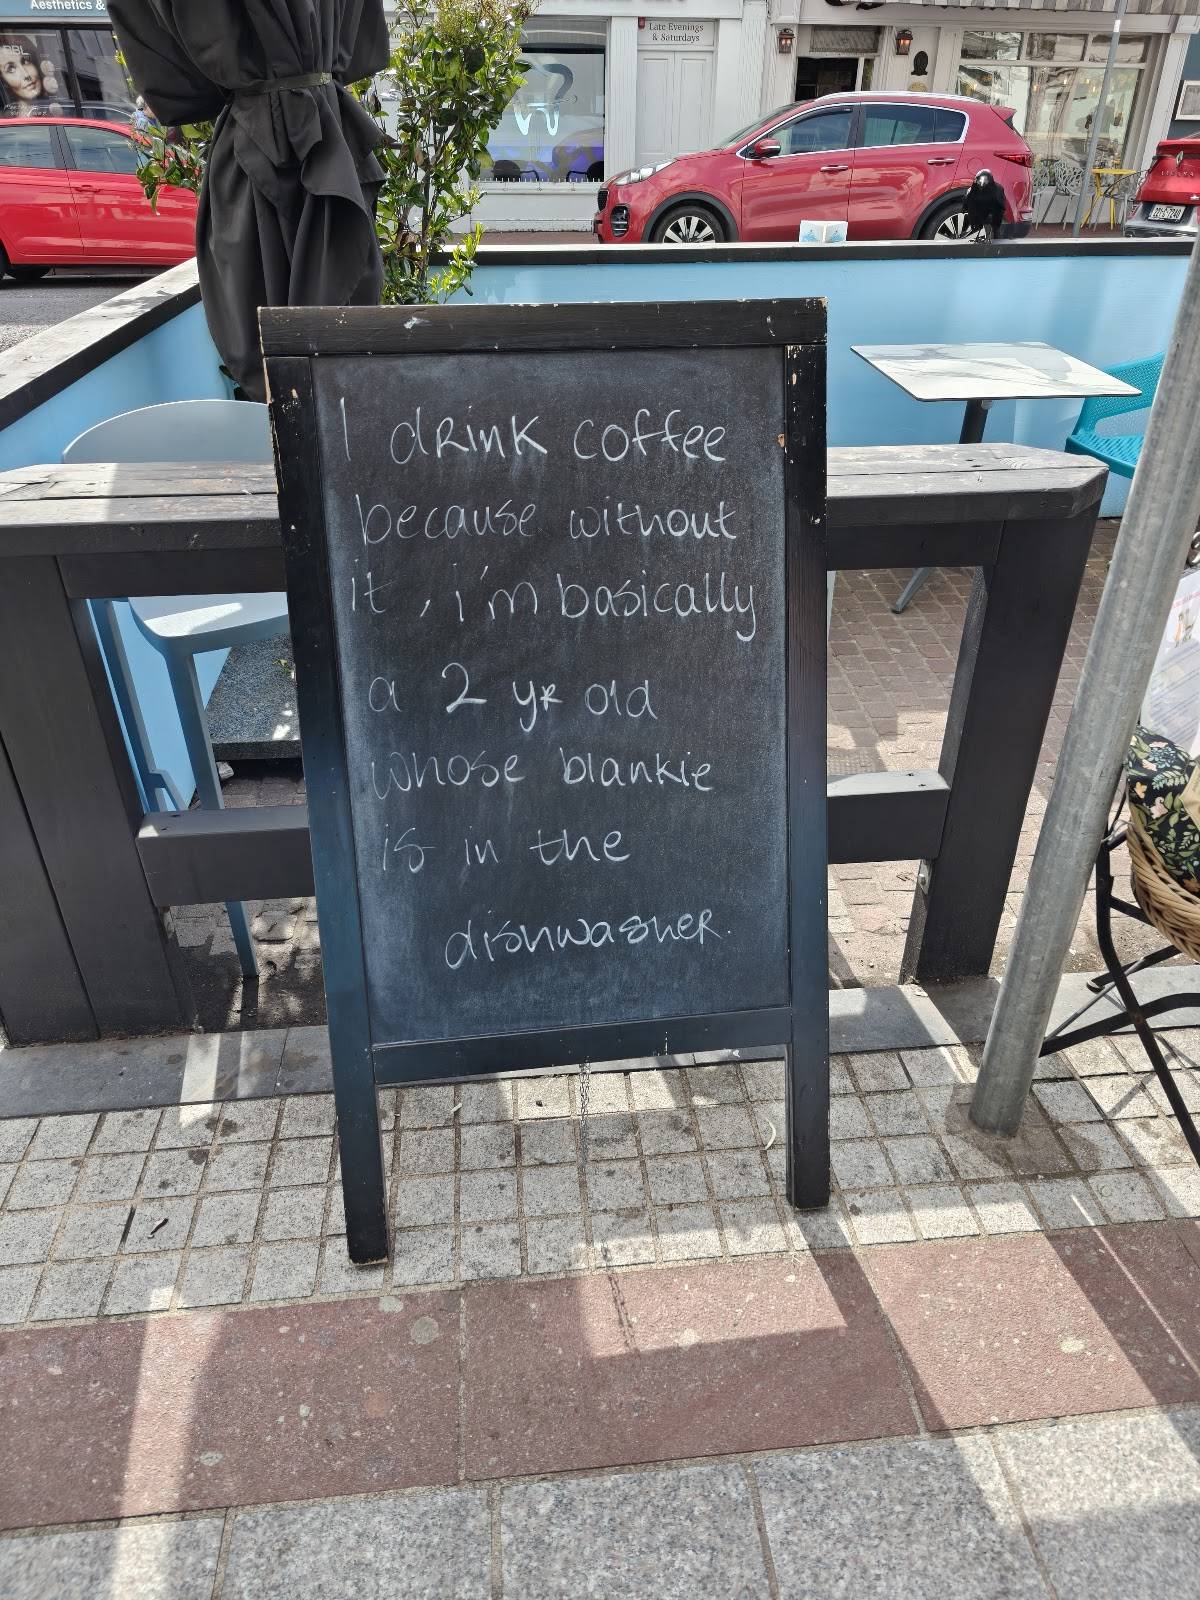 Aesthetics &
PBL
Late Evenings
& Saturdays
I drink coffee
because without
it, i'm basically
a 2 yr old
whose blankie
is in the
dishwasher.